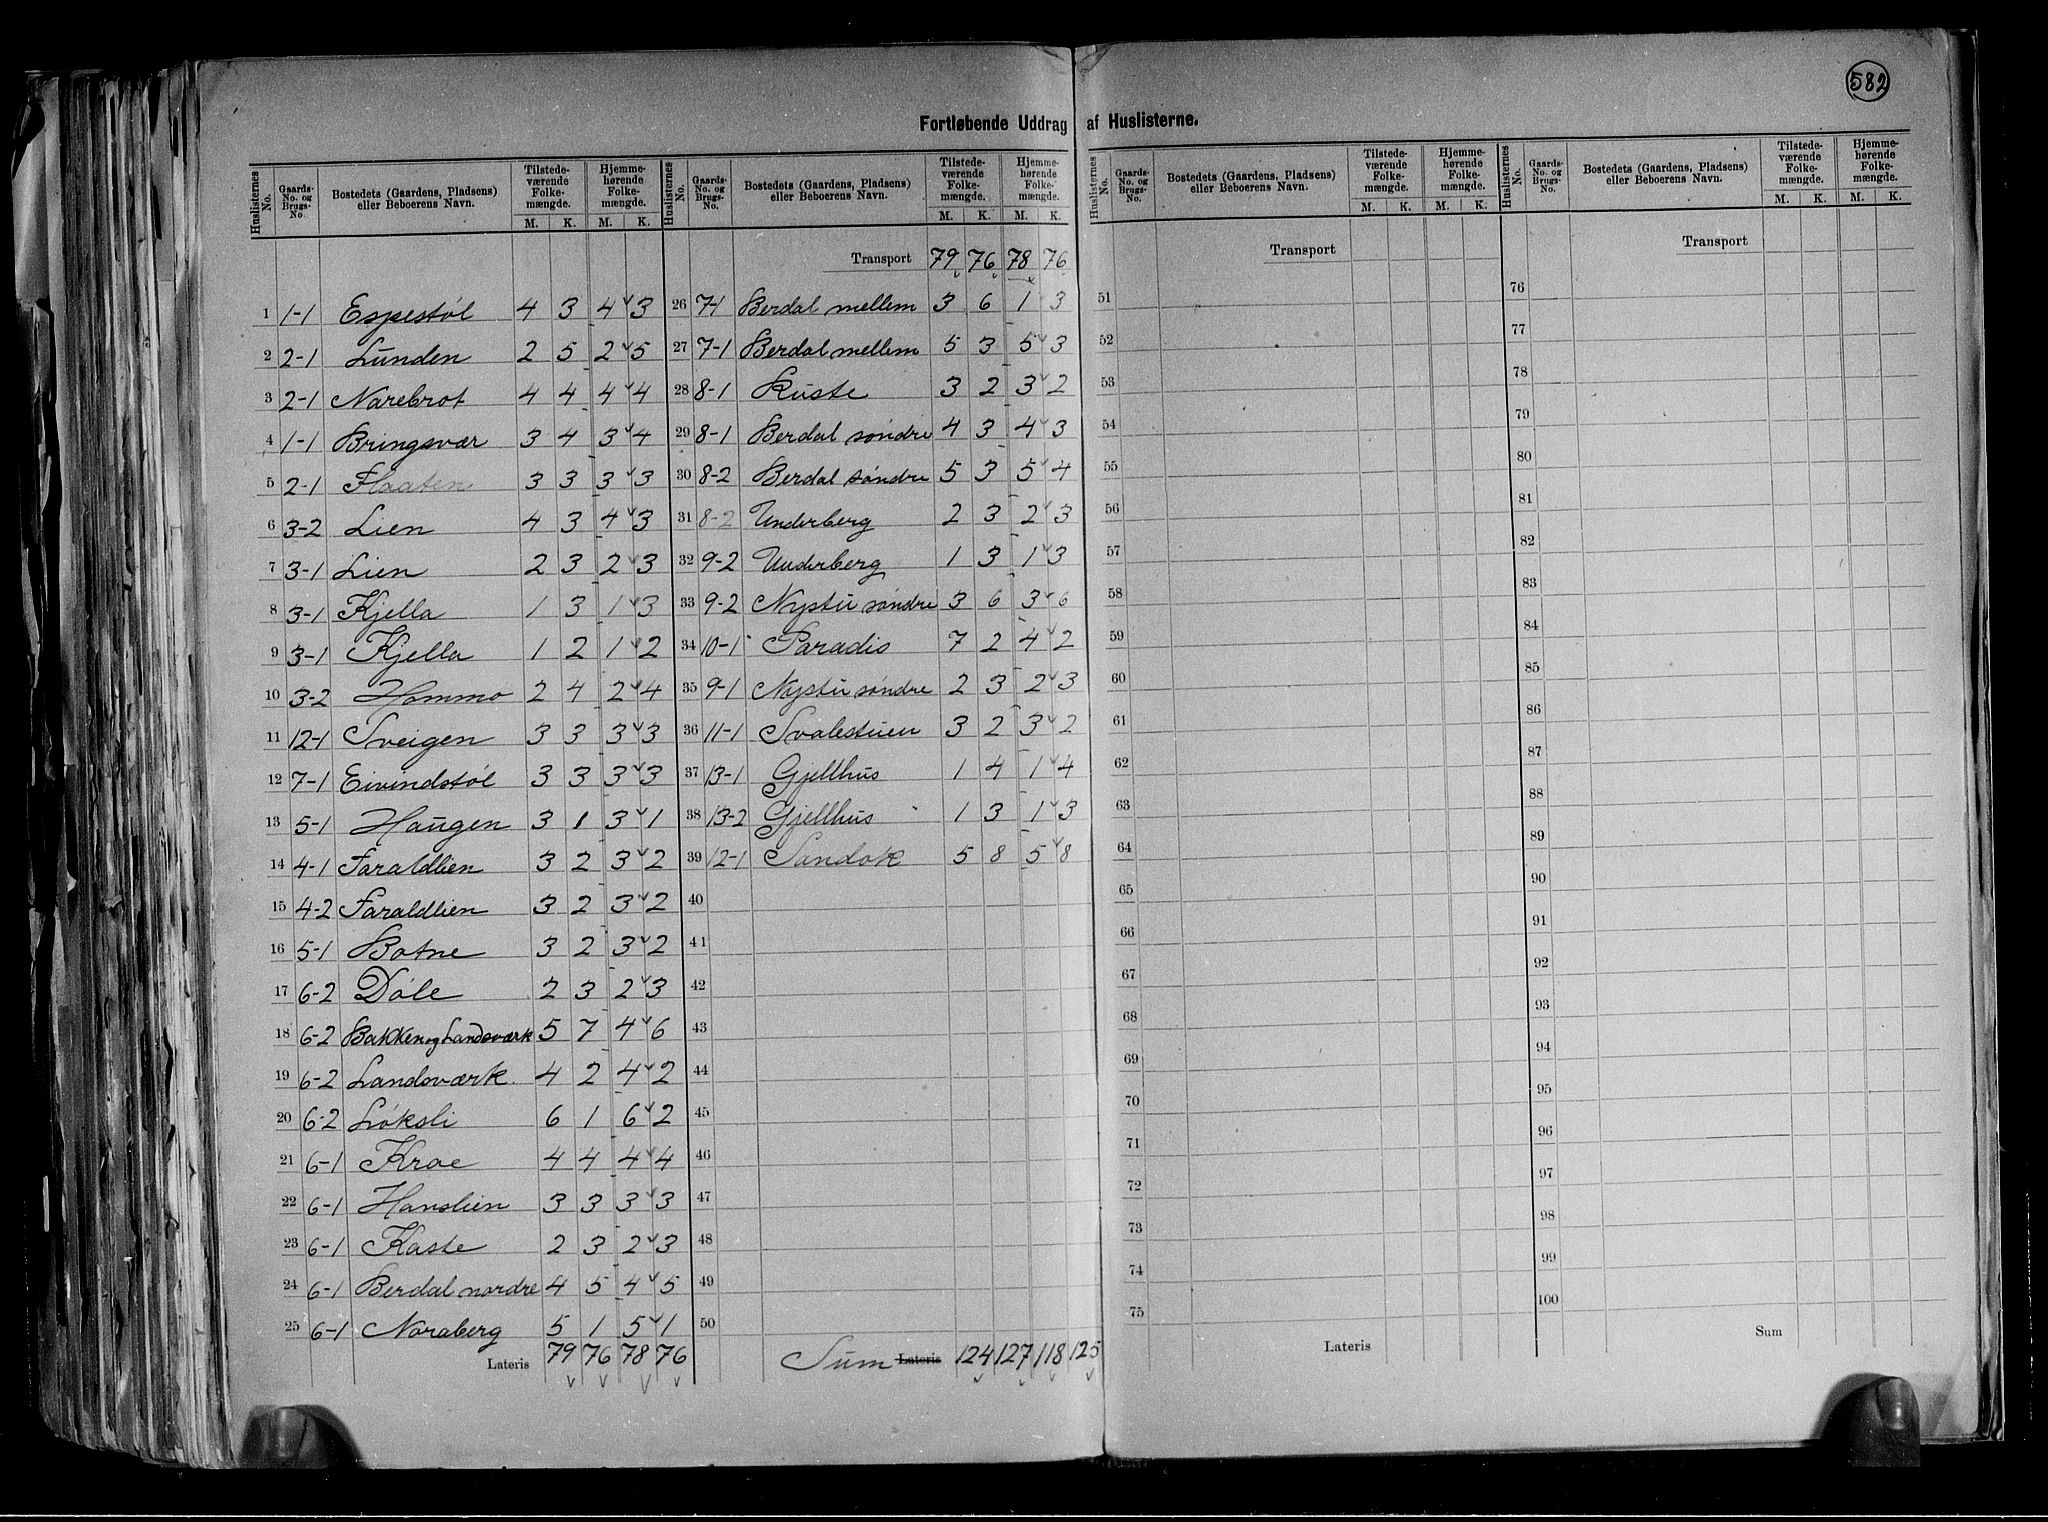 582
Fortløbende Uddrag af Huslisterne.
Huslisternes No. | Gaards-No. og Brugs-No. | Bostedets (Gaardens, Pladsens) eller Beboerens Navn. | Tilstedeværende Folkemængde. M. K. | Hjemmehørende Folkemængde. M. K.
1 1-1 Espestøl 4 3 4 3
2 2-1 Lunden 2 5 2 5
3 2-1 Narebrot 4 4 4 4
4 1-1 Bringsvær 3 4 3 4
5 2-1 Flaaten 3 3 3 3
6 3-2 Lien 4 3 4 3
7 3-1 Lien 2 3 2 3
8 3-1 Kjella 1 3 1 3
9 3-1 Kjella 1 2 1 2
10 3-2 Hommo 2 4 2 4
11 12-1 Sveigen 3 3 3 3
12 7-1 Eivindstøl 3 3 3 3
13 5-1 Haugen 3 1 3 1
14 4-1 Faraldlien 3 2 3 2
15 4-2 Faraldlien 3 2 3 2
16 5-1 Botne 3 2 3 2
17 6-2 Døle 2 3 2 3
18 6-2 Bakken og Landsværk 5 7 4 6
19 6-2 Landsværk 4 2 4 2
20 6-2 Løksli 6 1 6 2
21 6-1 Kroe 4 4 4 4
22 6-1 Hanslien 3 3 3 3
23 6-1 Kaste 2 3 2 3
24 6-1 Berdal nordre 4 5 4 5
25 6-1 Noraberg 5 1 5 1
Lateris 79 76 78 76
Huslisternes No. | Gaards-No. og Brugs-No. | Bostedets (Gaardens, Pladsens) eller Beboerens Navn. | Tilstedeværende Folkemængde. M. K. | Hjemmehørende Folkemængde. M. K.
Transport 79 76 78 76
26 7-1 Berdal mellem 3 6 1 3
27 7-1 Berdal mellem 5 3 5 3
28 8-1 Kuste 3 2 3 2
29 8-1 Berdal søndre 4 3 4 3
30 8-2 Berdal søndre 5 3 5 4
31 8-2 Underberg 2 3 2 3
32 9-2 Underberg 1 3 1 3
33 9-2 Nystu søndre 3 6 3 6
34 10-1 Paradis 7 2 4 2
35 9-1 Nystu søndre 2 3 2 3
36 11-1 Svalestuen 3 2 3 2
37 13-1 Gjellhus 1 4 1 4
38 13-2 Gjellhus 1 3 1 3
39 12-1 Sandok 5 8 5 8
40
41
42
43
44
45
46
47
48
49
50
Sum Lateris 124 127 118 125
Huslisternes No. | Gaards-No. og Brugs-No. | Bostedets (Gaardens, Pladsens) eller Beboerens Navn. | Tilstedeværende Folkemængde. M. K. | Hjemmehørende Folkemængde. M. K.
Transport
51
52
53
54
55
56
57
58
59
60
61
62
63
64
65
66
67
68
69
70
71
72
73
74
75
Lateris
Huslisternes No. | Gaards-No. og Brugs-No. | Bostedets (Gaardens, Pladsens) eller Beboerens Navn. | Tilstedeværende Folkemængde. M. K. | Hjemmehørende Folkemængde. M. K.
Transport
76
77
78
79
80
81
82
83
84
85
86
87
88
89
90
91
92
93
94
95
96
97
98
99
100
Sum